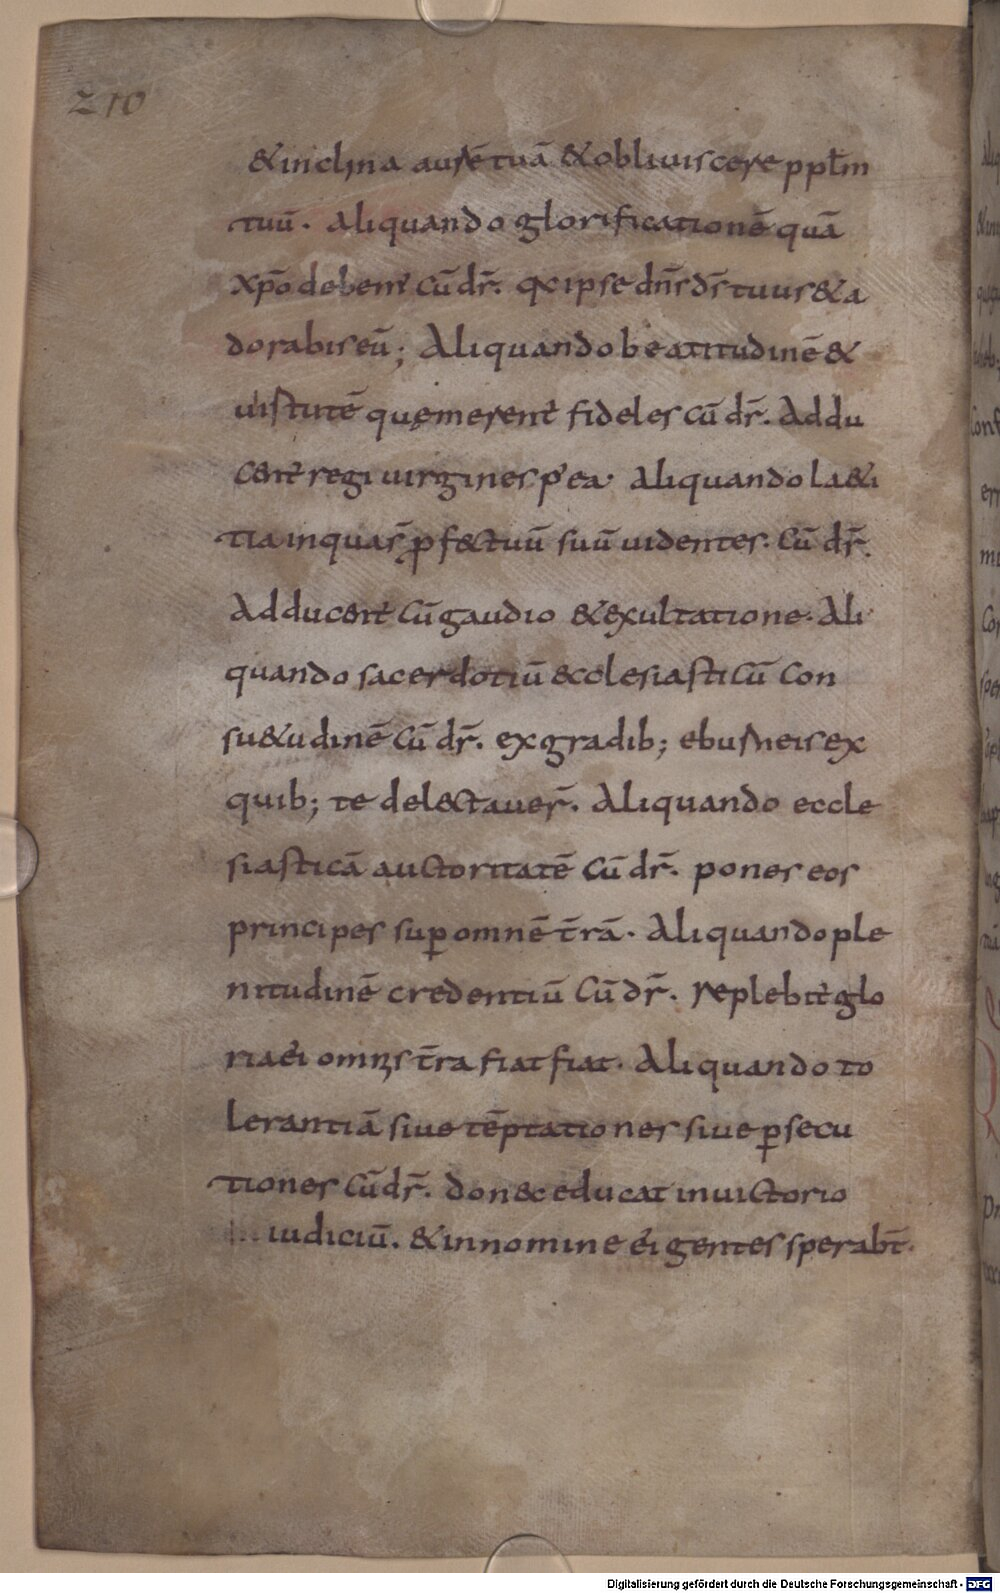 210
& inclina aurē tuā & obliviscere ppłm
tuū. Aliquando glorificationē quā
xp̄o debem' cū dr̄. qx ipse dn̄s ds̄ tuus & a
dorabis eū; Aliquando beatitudinē &
uirtutē quę merent' fideles cū dr̄. Addu
cent' regi uirgines p' ea. Aliquando l&i
tia in quar̄ ꝓf&ctuū suū uidentes. Cū dr̄.
Adducent' cū gaudio & exultatione. Ali
quando sacerdotiū ecclesiasticū con
su&udinē cū dr̄. ex gradib; eburneis ex
quib; te del&ctauer̄. Aliquando eccle
siasticā auctoritatē cū dr̄. pones eos
principes suꝑ omnē t̄rā. Aliquando ple
nitudinē credentiū cū dr̄. replebit' glo
ria ei' omīs t̄ra fiat fiat. Aliquando to
lerantiā siue tēptationes siue ꝑsecu
tiones cū dr̄. don&c educat in uictorio
iudiciū. & in nomine ei' gentes sperabt̄.
Digitalisierung gefördert durch die Deutsche Forschungsgemeinschaft - DFG